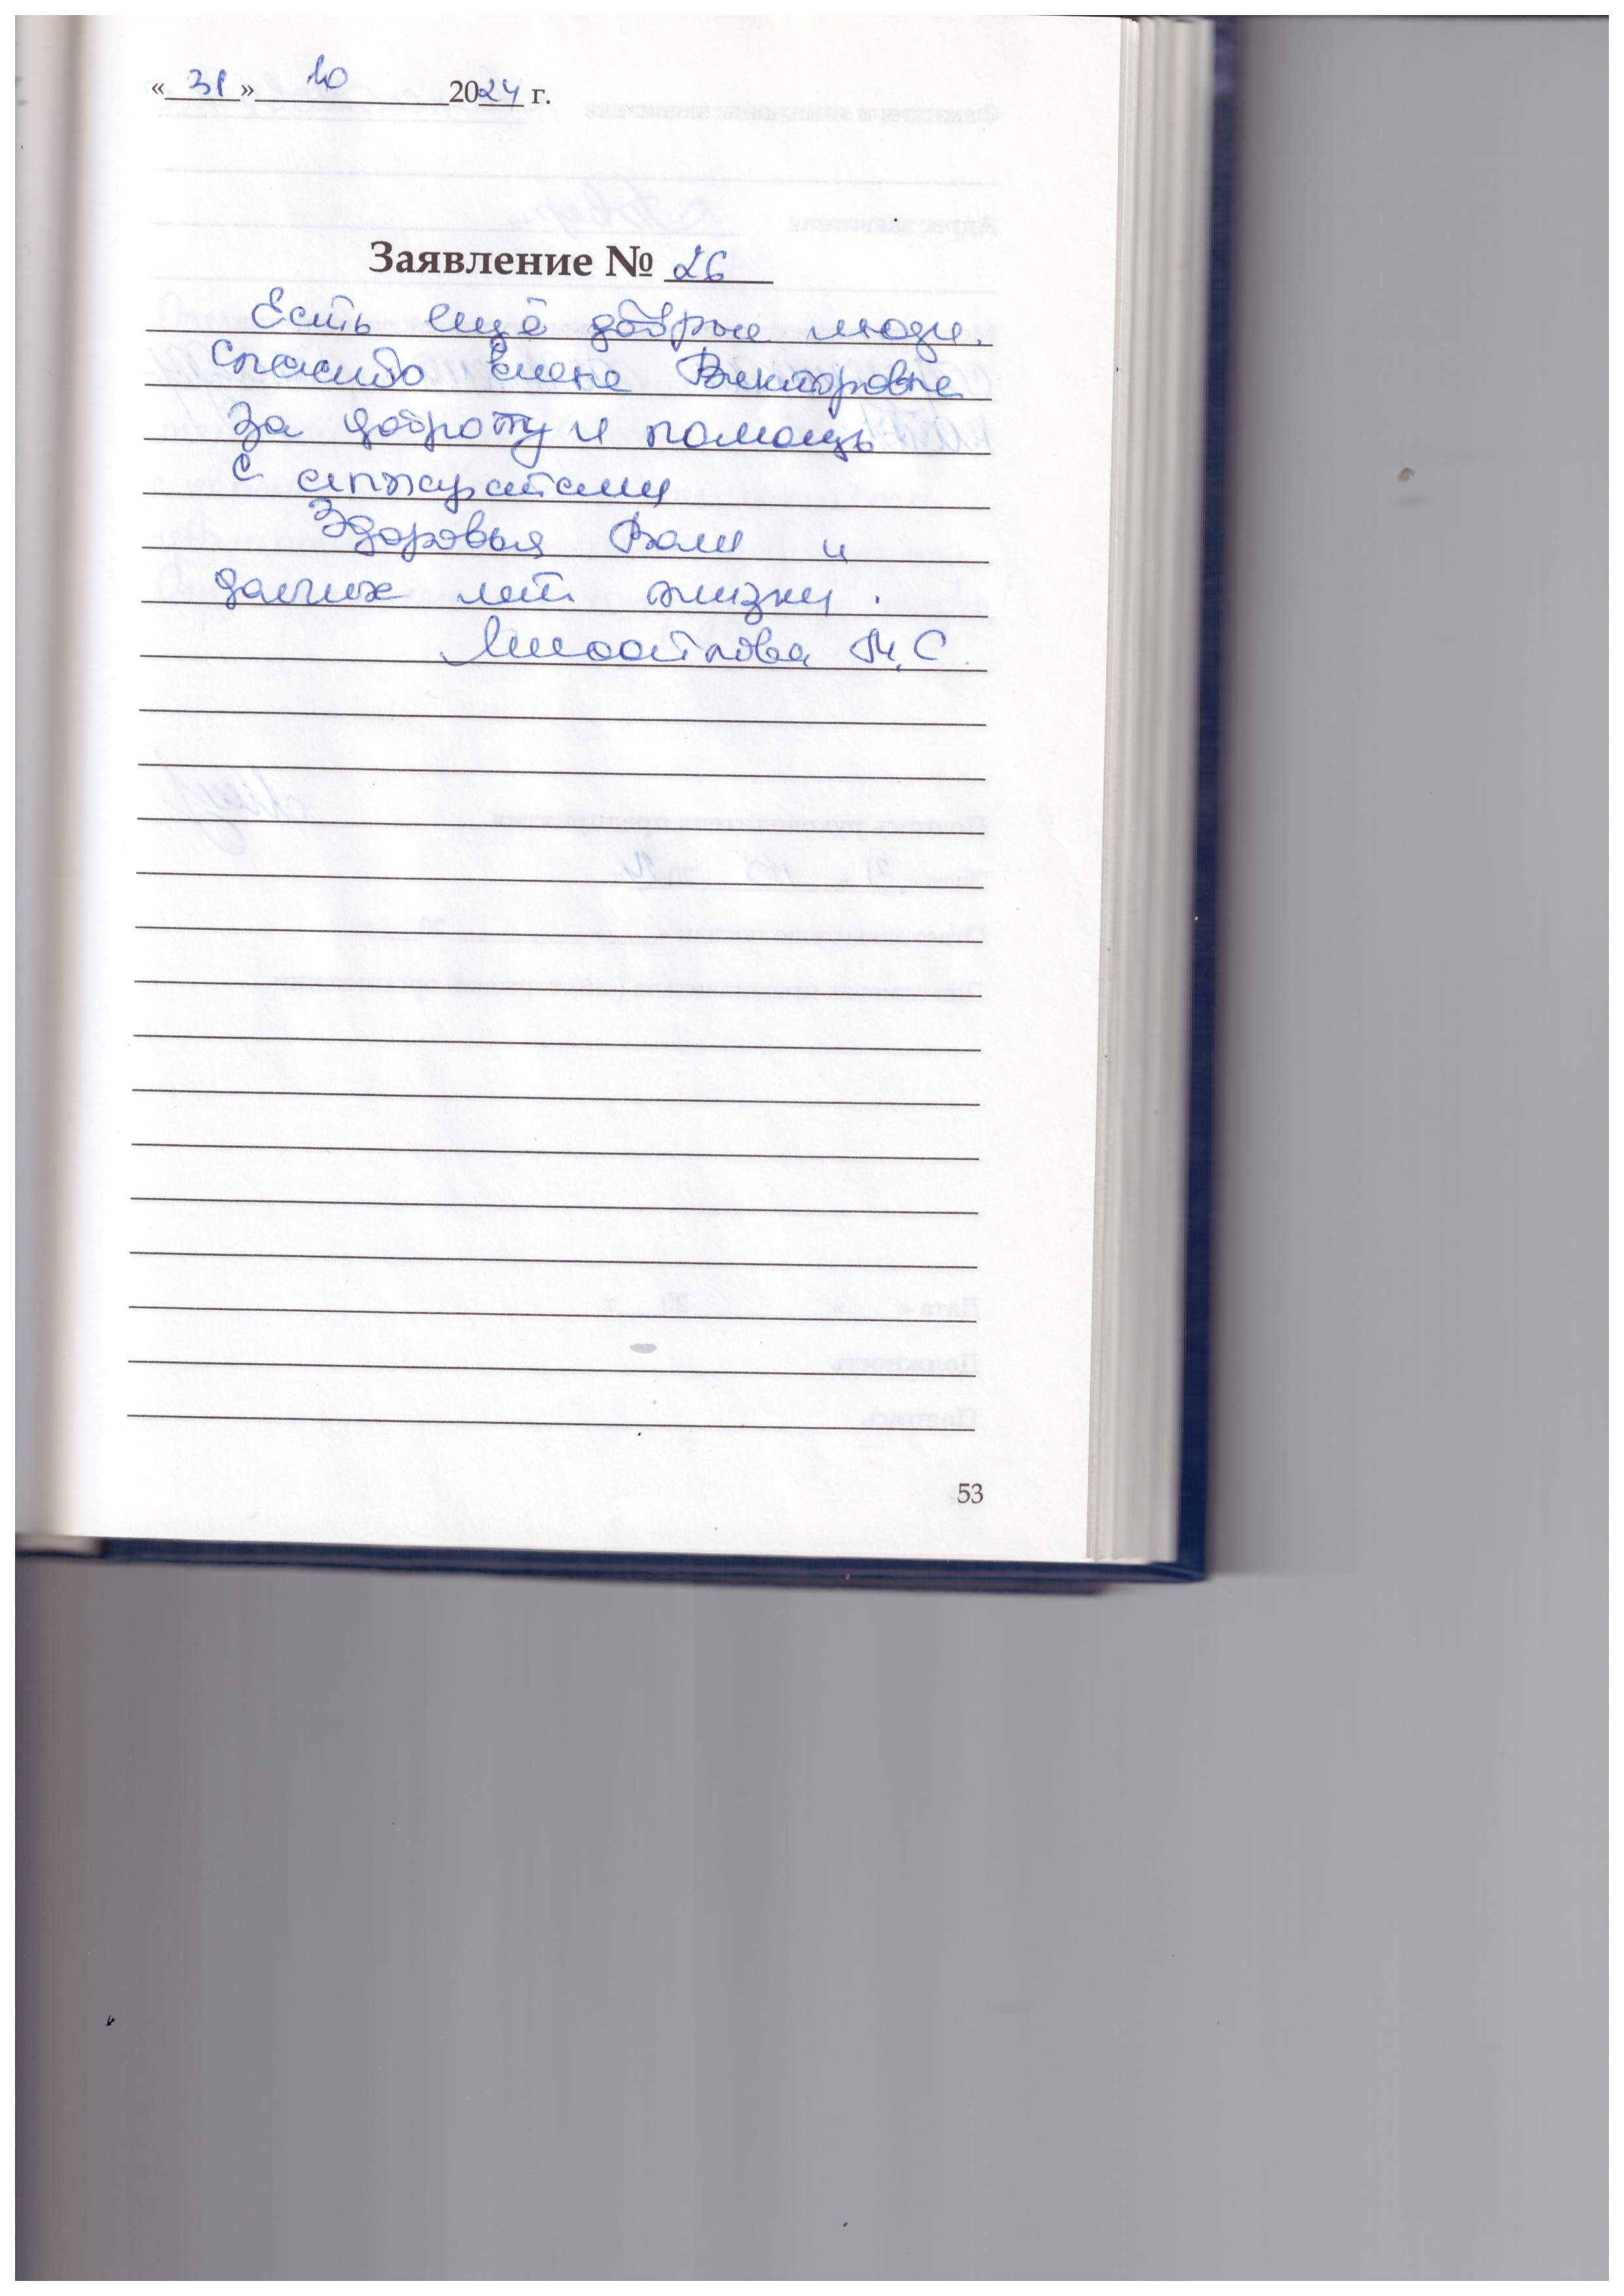 «31» 10 2024 г.
Заявление № 26
Есть ещё добрые люди.
Спасибо Елене Викторовне
за доброту и помощь
с аппаратами
Здоровья Вам и
долгих лет жизни.
М.С.
53